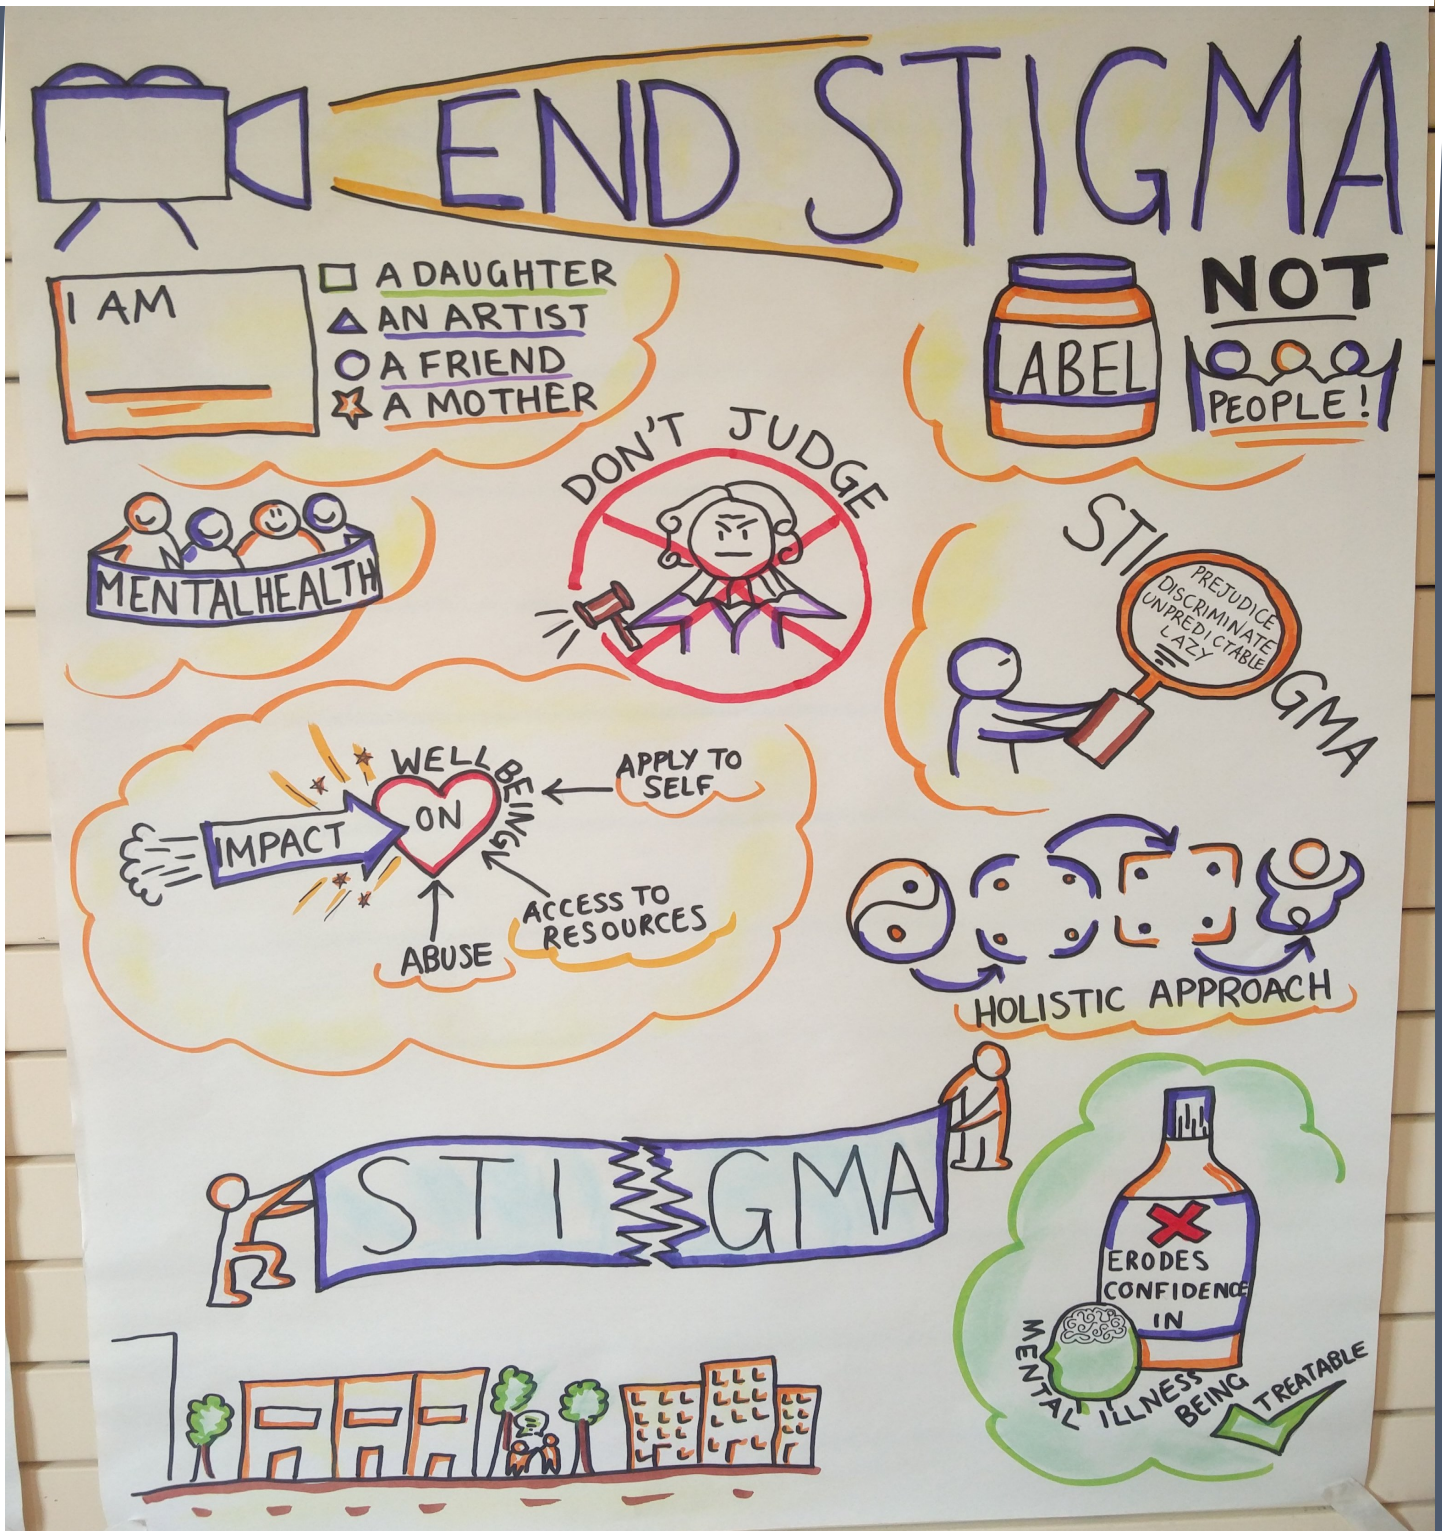 END STIGMA
I AM
A DAUGHTER
AN ARTIST
A FRIEND
A MOTHER
LABEL
NOT
PEOPLE!
DON'T JUDGE
MENTAL HEALTH
STI
PREJUDICE
DISCRIMINATE
UNPREDICTABLE
LAZY
GMA
IMPACT
ON
WELLBEING
APPLY TO
SELF
ACCESS TO
RESOURCES
ABUSE
HOLISTIC APPROACH
STI GMA
ERODES
CONFIDENCE
IN
MENTAL ILLNESS
BEING
TREATABLE